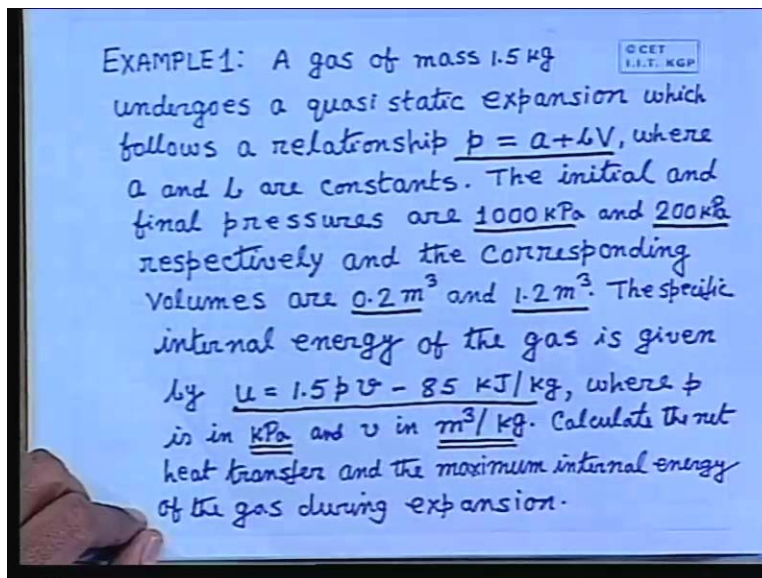 EXAMPLE 1: A gas of mass 1.5 kg
© CET
I.I.T. KGP
undergoes a quasi static expansion which
follows a relationship p = a+bV, where
a and b are constants. The initial and
final pressures are 1000 kPa and 200 kPa
respectively and the corresponding
volumes are 0.2 m³ and 1.2 m³. The specific
internal energy of the gas is given
by u = 1.5 p v - 85 kJ/kg, where p
is in kPa and v in m³/kg. Calculate the net
heat transfer and the maximum internal energy
of the gas during expansion.